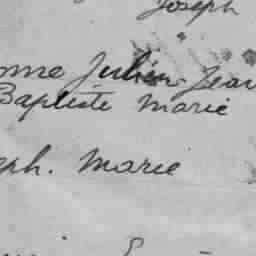 Joseph
ome Julien Jean
Baptiste Marie
eph. Marie